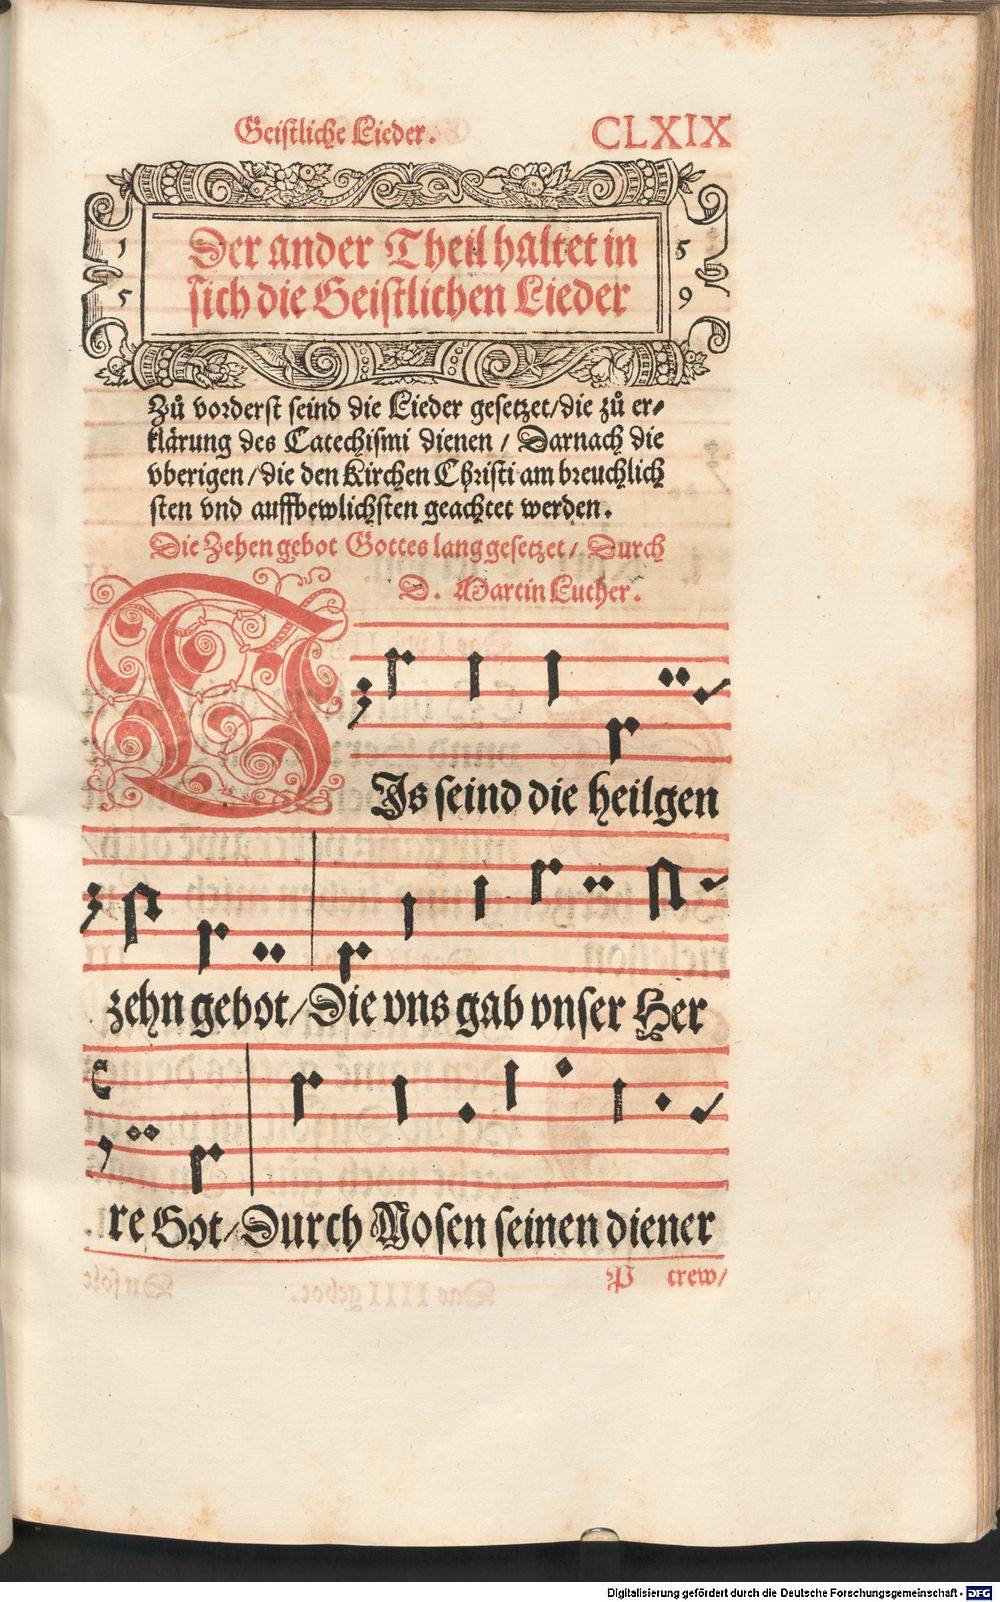 Geistliche Lieder. CLXIX
1 5
Der ander Theil haltet in
sich die Geistlichen Lieder
5 9
Zů vorderst seind die Lieder gesetzet/die zů er-
klärung des Catechismi dienen / Darnach die
vberigen/die den Kirchen Christi am breuchlich
sten vnd auffbewlichsten geachtet werden.
Die Zehen gebot Gottes lang gesetzet/ Durch
D. Martin Luther.
DIs seind die heilgen
zehn gebot/Die vns gab vnser Her
re Got/Durch Mosen seinen diener
P trew/
Digitalisierung gefördert durch die Deutsche Forschungsgemeinschaft - DFG